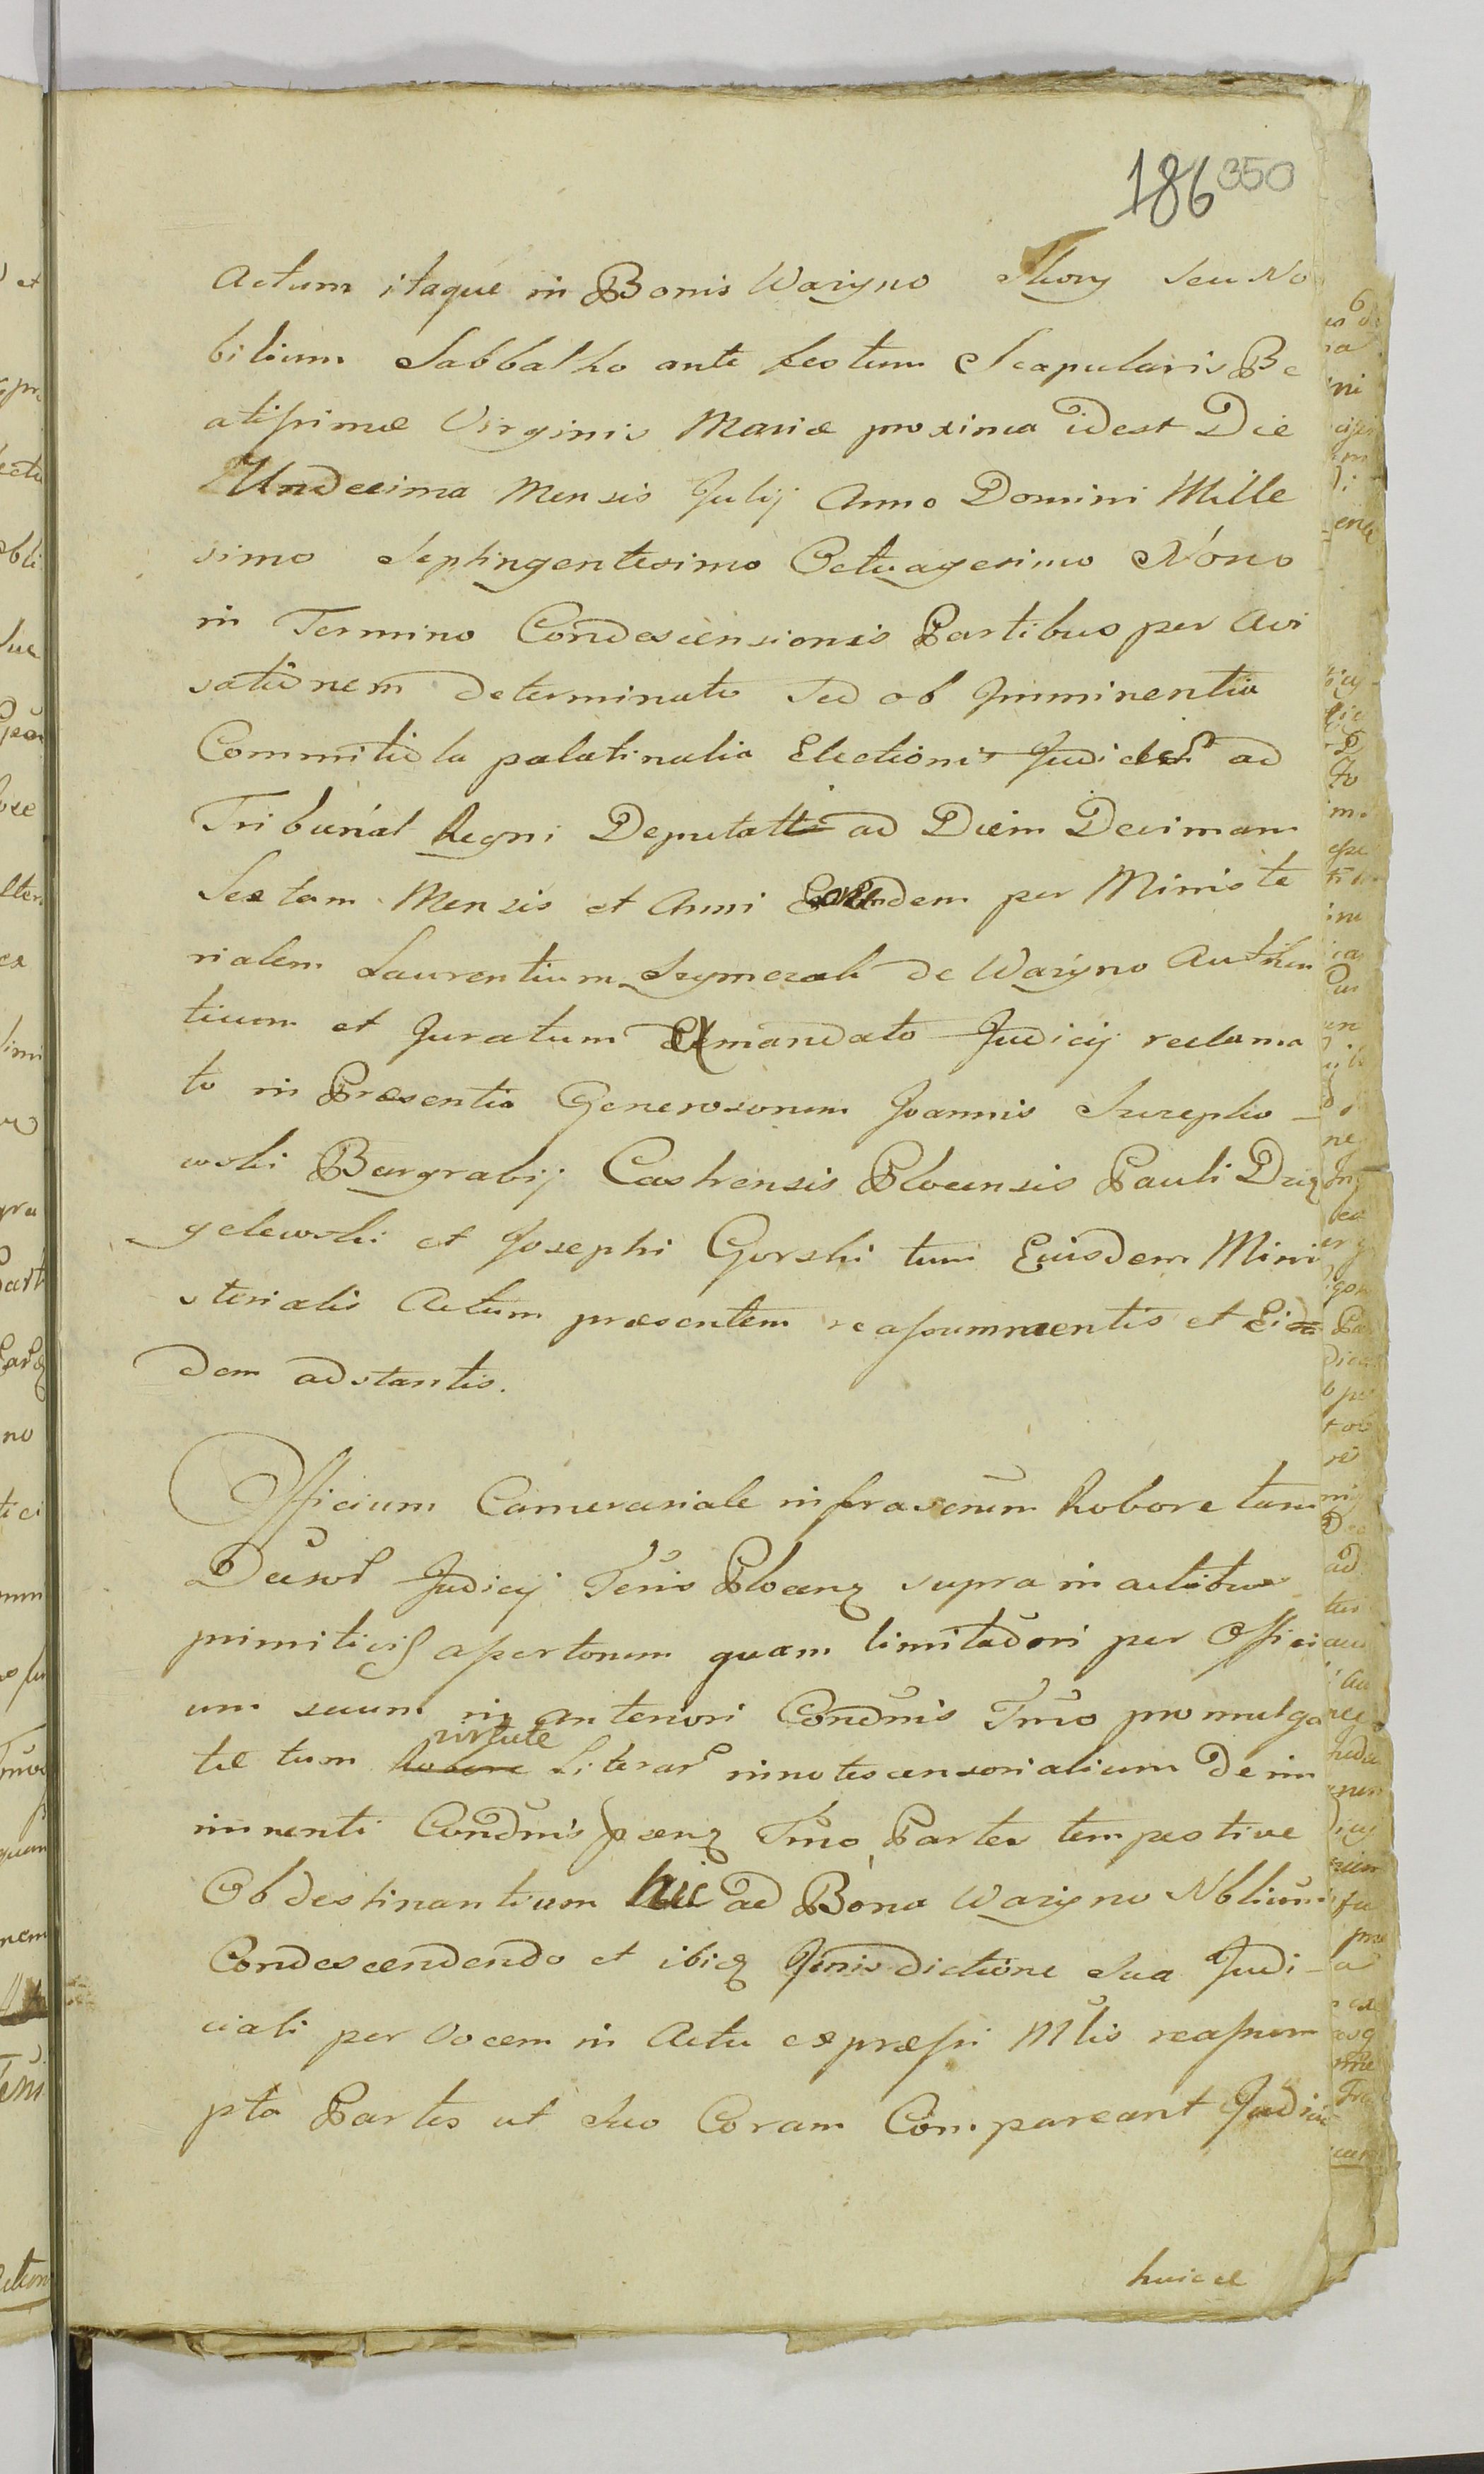 186 350
Actum itaque in Bonis Wazyno Skory seu No
bilium Sabbatho ante Festum Scapularis Be
atissimæ Virginis Mariæ proxima idest Die
Undecima Mensis Julij Anno Domini Mille
simo Septingentesimo Octuagesimo Nono
in Termino Condescensionis Partibus per Avi
sationem determinato sed ob Imminentia
Commitiola palatinalia Electionis Judicum ad
Tribunal Regni Deputatti ad Diem Decimam
Sextam Mensis et Anni Eorundem per Ministe
rialem Laurentium Szymczak de Wazyno Authen
ticum et Juratum Exmandato Judicij reclama
to in Præsentia Generosorum Joannis
wski Burgrabij Castrensis Plocensis Pauli
gelewski et Josephi Gorski tum Eiusdem Mini
sterialis Actum præsentem reassummentis et Ei
dem adstantis.
Officium Camerariale infrascrum Robore tam
Decror Judicij Terris Plocenz supra in actibus
primitivis apertorum quam limitaõri per Offici
um suum in anteriori Condnis Tmo promulga
tæ tum Robore virtute Literar innotescensorialium de im
minenti Condnis præenz Tmo, Partes tempestive
Obdestinantium hic ad Bona Wazyno Nblium
Condescendendo et ibiq Jurisdictione Sua Judi
ciali per Vocem in Actu expræssi Mlis reassum
pta Partes ut Suo Coram Compareant Judicio
huic et